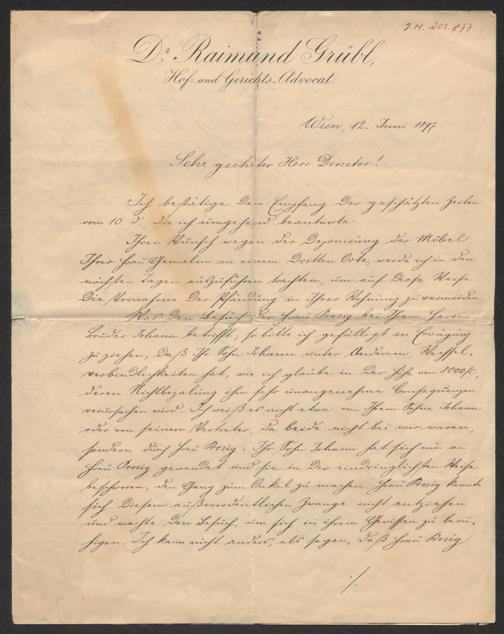 J.N. 201.877
Dr. Raimund Grübl,
Hof- und Gerichts-Advocat.
Wien, 12. Juni 1897.
Sehr geehrter Herr Director!
Ich bestätige den Empfang der geschätzten Zeilen
vom 10. d., die ich umgehend beantworte.
Ihren Wunsch wegen der Deponirung der Möbel
Ihrer Frau Gemalin an einem dritten Orte, werde ich in den
nächsten Tagen auszuführen trachten, um auf diese Weise
die Vornahme der Pfändung in Ihrer Wohnung zu vermeiden.
Was den Besuch der Frau bei Ihrem Herrn
Bruder Johann betrifft, so bitte ich gefälligst in Erwägung
zu ziehen, daß Ihr Sohn Johann unter Anderem, Wechsel-
verbindlichkeiten hat, wie ich glaube in der Höhe von 8000 fl.,
deren Nichtbezalung ihm sehr unangenehme Consequenzen
verursachen wird. Ich weiß es nicht etwa von Ihrem Sohne Johann
oder von seinem Vertreter, da beide nicht bei mir waren,
sondern durch Frau. Ihr Sohn Johann hat sich nun an
Frau gewendet und sie in der eindringlichsten Weise
beschworen, den Gang zum Onkel zu machen. Frau konnte
sich diesem außerordentlichen Zwange nicht entziehen
und machte den Besuch, um sich in ihrem Gewissen zu beru-
higen. Ich kann nicht anders, als sagen, daß Frau
./.